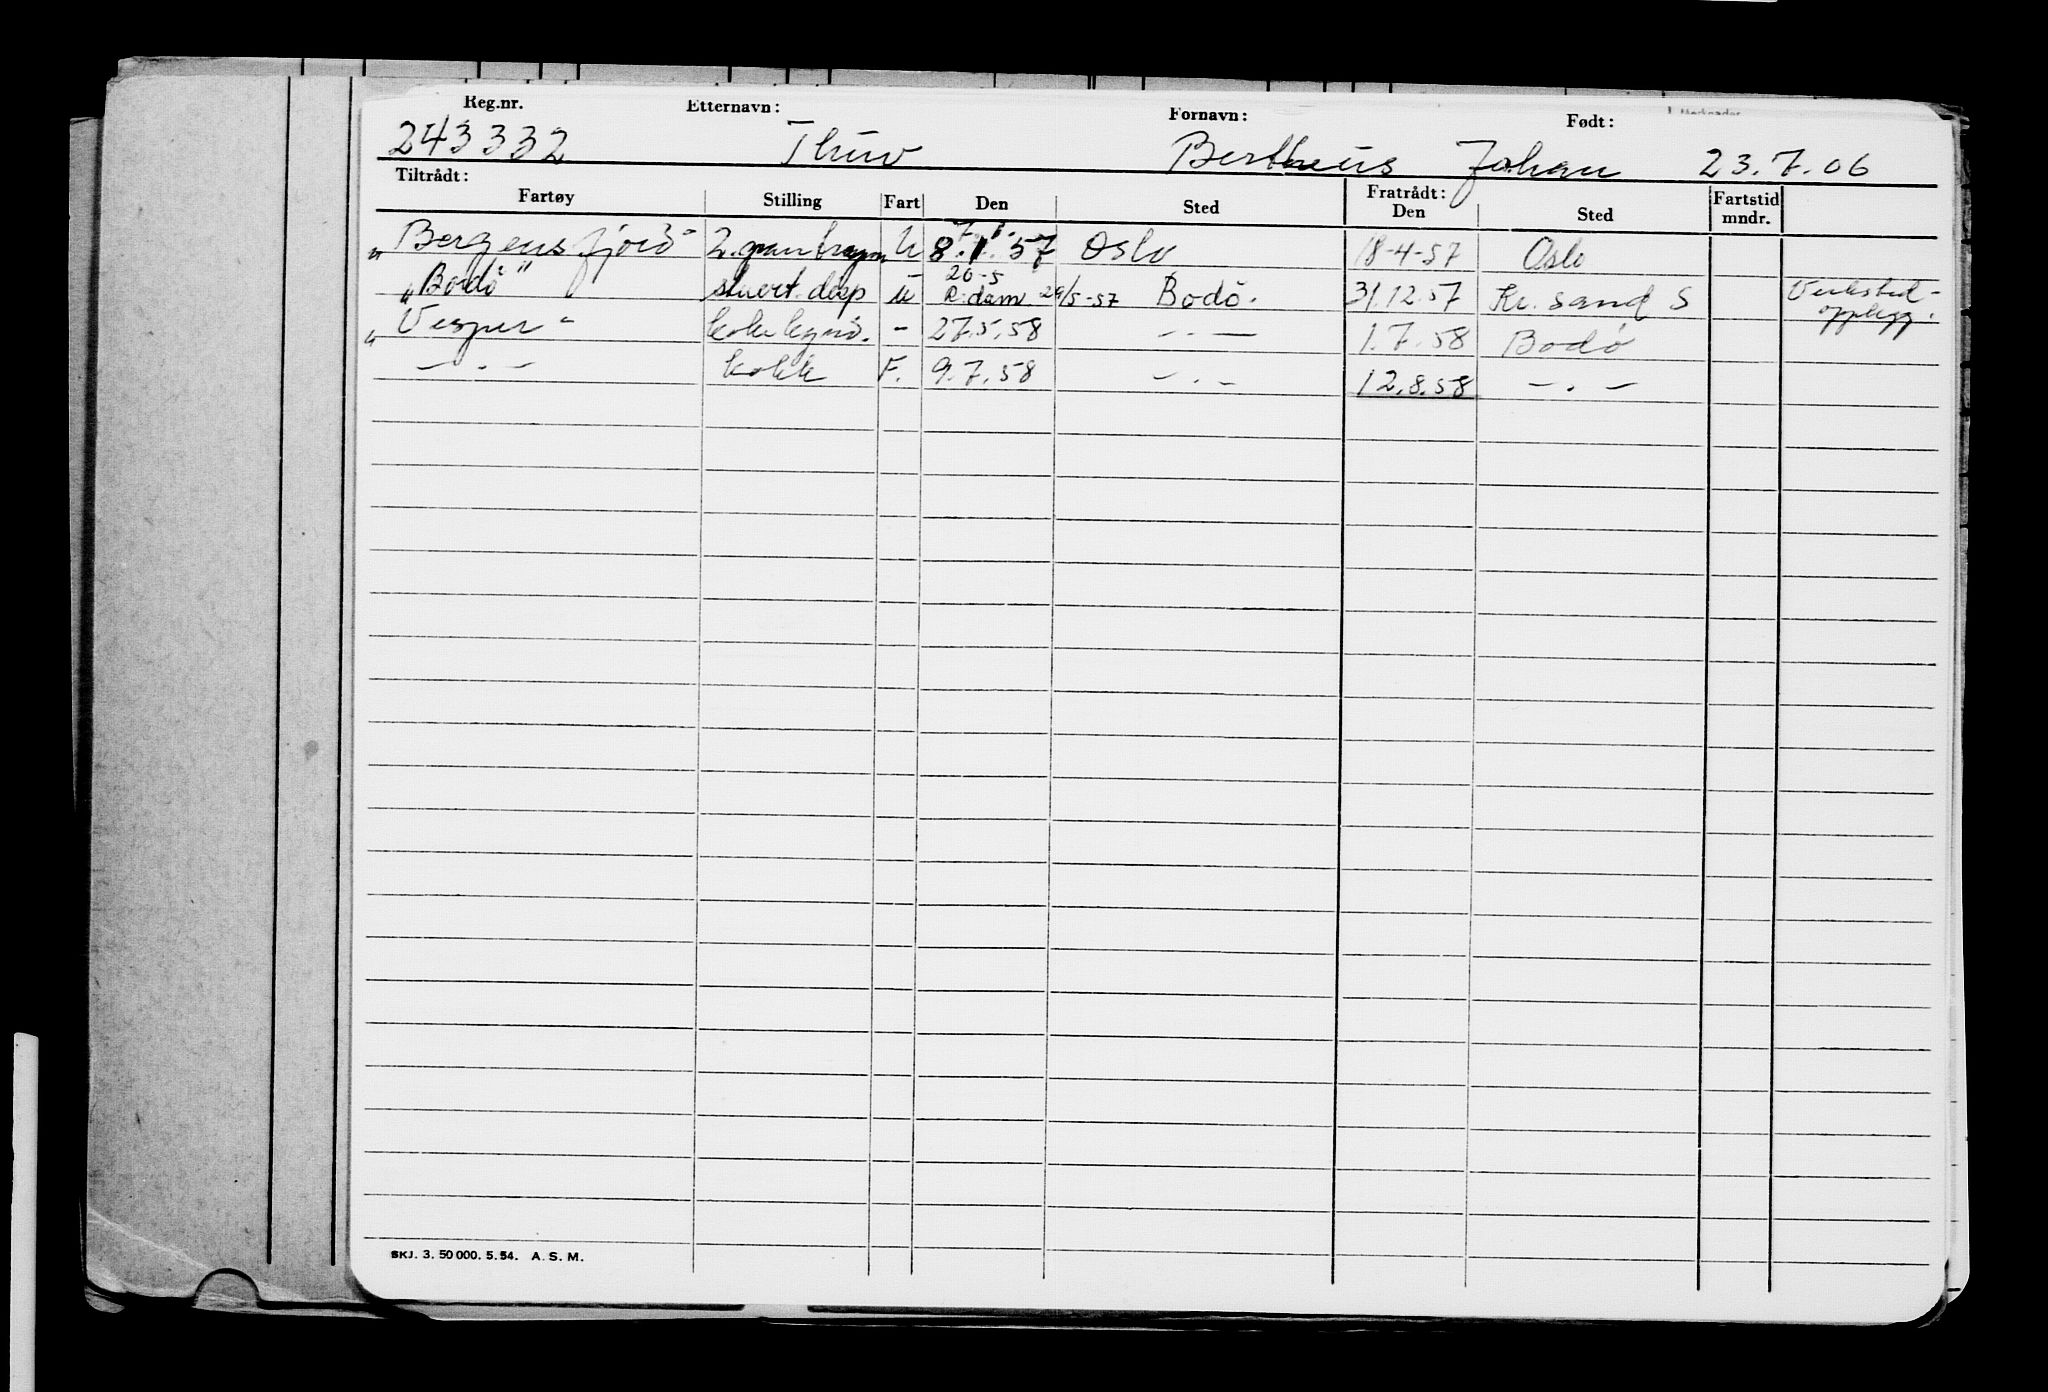 Reg.nr. Etternavn: Fornavn: Født:
243332 Thuv Bertheus Johan 23.7.06
Tiltrådt: Fratrådt:
Fartøy Stilling Fart Den Sted Den Sted Fartstid mndr.
7. 1.
„Bergensfjord" 2. U 8.1.57 Oslo 18-4-57 Oslo
20-5
„Bodö" stuert. desp U R.dam 29/5-57 Bodö. 31.12.57 Kr. sand S Verksted-
opplegg.
„Vesper" kokk byssö. - 27.5.58 — · — 1.7.58 Bodö
— · — kokk F. 9.7.58 — · — 12.8.58 — · —
SKJ. 3. 50 000. 5. 54. A. S. M.